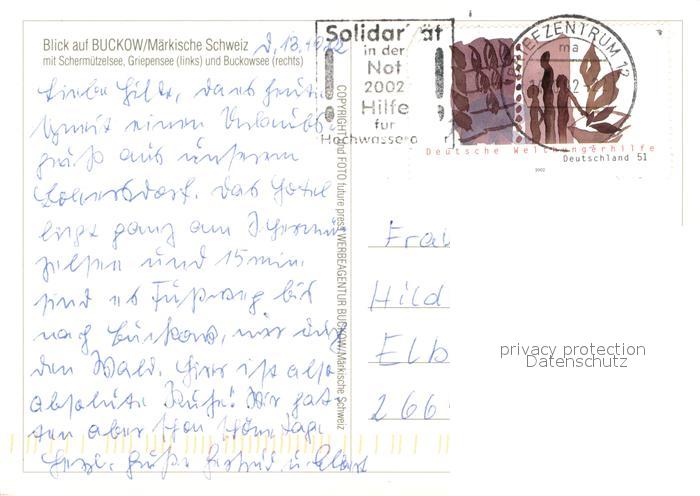 Blick auf BUCKOW/Märkische Schweiz
mit Schermützelsee, Griepensee (links) und Buckowsee (rechts)
Solidarität
in der
Not
2002
Hilfe
für
Hochwasser
BRIEFZENTRUM 12
ma
Deutsche Welthungerhilfe
Deutschland 51
2002
COPYRIGHT und FOTO future press WERBEAGENTUR BUCKOW/Märkische Schweiz
Liebe Hilde, das
einen Urlaubs-
gruß aus unserem
Das Hotel
liegt ganz am Schermüt
zelsee und 15 min.
sind es Fußweg bis
nach Buckow, nur durch
den Wald. Hier ist also
absolute Ruhe! Wir hat-
ten aber schon schöne Tage.
Herzl. Grüße
Frau
Hild
Elb
266
privacy protection
Datenschutz